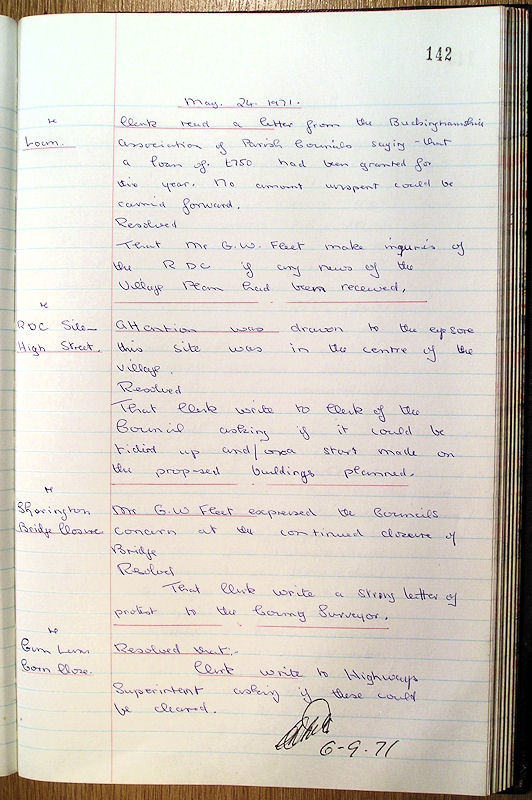 142
May. 24. 1971.
Re Loan.
Clerk read a letter from the Buckinghamshire
Association of Parish Councils saying that
a loan of £750 had been granted for
this year. No amount unspent could be
carried forward.
Resolved
That Mr G.W. Fleet make inquries of
the R D C if any news of the
Village Plan had been received.
Re RDC Site
High Street.
Attention was drawn to the
this site was in the centre of the
village.
Resolved
That Clerk write to Clerk of the
Council asking if it could be
tidied up and/or a start made on
the proposed buildings planned.
Re Sherington
Bridge Closure
Mr G.W Fleet expressed the Councils
concern at the continued closure of
Bridge
Resolved
That Clerk write a strong letter of
protest to the County Surveyor.
Re
Close.
Resolved that:-
Clerk write to Highways
Superintent asking if these could
be cleared.
6-9-71